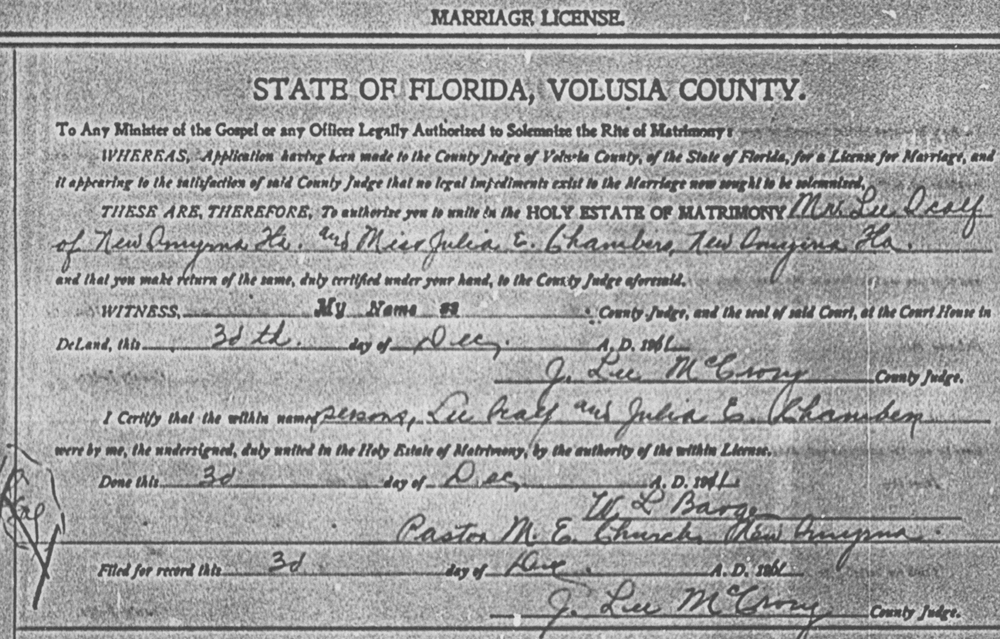 MARRIAGE LICENSE.
STATE OF FLORIDA, VOLUSIA COUNTY.
To Any Minister of the Gospel or any Officer Legally Authorized to Solemnize the Rite of Matrimony:
WHEREAS, Application having been made to the County Judge of Volusia County, of the State of Florida, for a License for Marriage, and
it appearing to the satisfaction of said County Judge that no legal impediments exist to the Marriage now sought to be solemnized,
THESE ARE, THEREFORE, To authorize you to unite in the HOLY ESTATE OF MATRIMONY Mr. Lee
of New Smyrna Fla. and Miss Julia E. Chambers, New Smyrna Fla.
and that you make return of the same, duly certified under your hand, to the County Judge aforesaid.
WITNESS, My Name as County Judge, and the seal of said Court, at the Court House in
DeLand, this 30th. day of Dec. A. D. 19
J. Lee McCrory County Judge.
I Certify that the within named persons, Lee and Julia E. Chambers
were by me, the undersigned, duly united in the Holy Estate of Matrimony, by the authority of the within License.
Done this 30 day of Dec, A. D. 19
W L Barge
Pastor M. E. Church New Smyrna.
Filed for record this 30. day of Dec. A. D. 19
J. Lee McCrory County Judge.